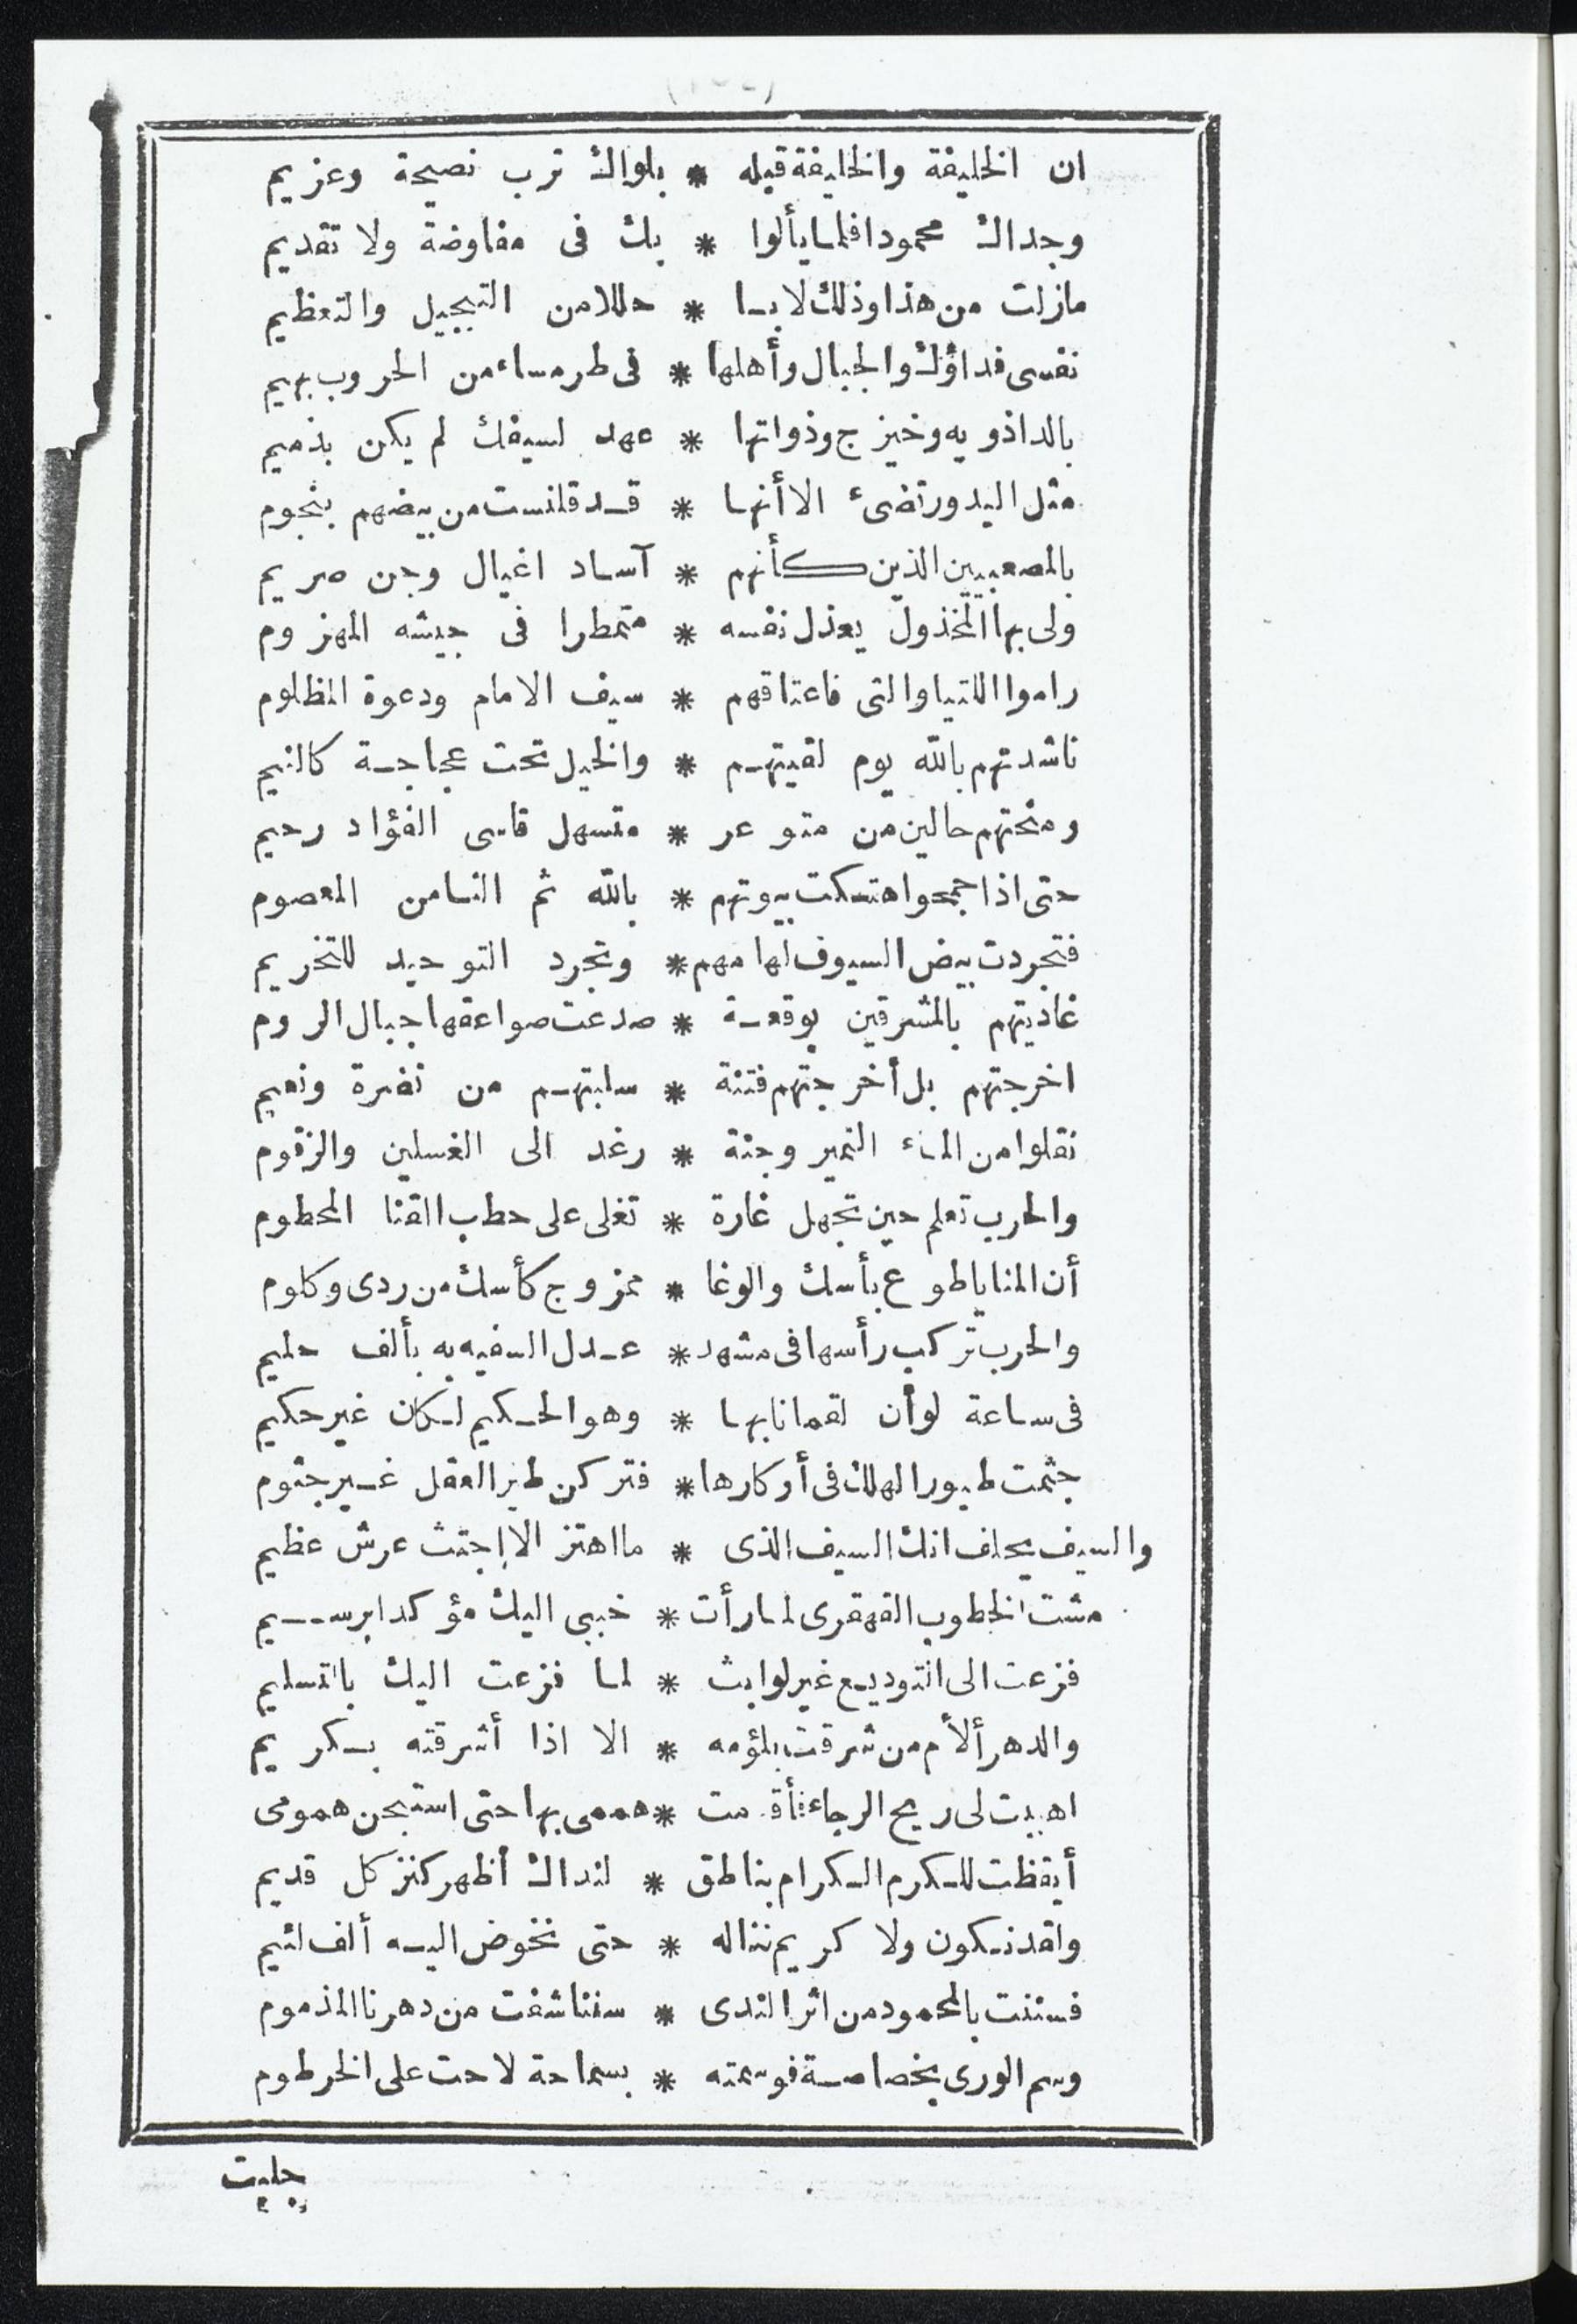 ان الخليفة والخليفة قبله * بلواك ترب نصيحة وعزيم
وجداك محمودا فلما يألوا * بك فى مفاوضة ولا تقديم
مازلت من هذا وذلك لابسا * حللا من التبجيل والتعظيم
نفسى فداؤك والجبال وأهلها * فى طرمساء من الحروب بهيم
بالداذويه وخيزج وذواتها * عهد لسيفك لم يكن بذميم
مثل البدور تضىء الا أنها * قد قلنست من بيضهم بنجوم
بالمصعبيين الذين كأنهم * آساد اغيال وجن صريم
ولى بها المخذول يعذل نفسه * متمطرا فى جيشه المهزوم
راموا اللتيا والتى فاعتاقهم * سيف الامام ودعوة المظلوم
ناشدتهم بالله يوم لقيتهم * والخيل تحت عجاجة كالنيم
ومنحتهم حالين من متوعر * متسهل قاسى الفؤاد رحيم
حتى اذا جمحوا هتكت بيوتهم * بالله ثم الثامن المعصوم
فتجردت بيض السيوف لهامهم * وتجرد التوحيد للتخريم
غاديتهم بالمشرقين بوقعة * صدعت صواعقها جبال الروم
اخرجتهم بل أخرجتهم فتنة * سلبتهم من نضرة ونعيم
نقلوا من الماء النمير وجنة * رغد الى الغسلين والزقوم
والحرب تعلم حين تجهل غارة * تغلى على حطب القنا المحطوم
أن المنايا طوع بأسك والوغا * ممزوج كأسك من ردى وكلوم
والحرب تركب رأسها فى مشهد * عدل السفيه به بألف حليم
فى ساعة لو أن لقمانا بها * وهو الحكيم لكان غير حكيم
جثمت طيور الهلك فى أوكارها * فتركن طير العقل غير جثوم
والسيف يحلف انك السيف الذى * ما اهتز الا اجتث عرش عظيم
مشت الخطوب القهقرى لما رأت * خببى اليك مؤكدا برسيم
فزعت الى التوديع غير لوابث * لما فزعت اليك بالتسليم
والدهر ألأم من شرقت بلؤمه * الا اذا أشرقته بكريم
اهبيت لى ريح الرجاء فأقدمت * هممى بها حتى استبحن همومى
أيقظت للكرم الكرام بناطق * لنداك أظهر كنز كل قديم
ولقد نكون ولا كريم نناله * حتى نخوض اليه ألف لئيم
فسننت بالمحمود من اثر الندى * سننا شفت من دهرنا المذموم
وسم الورى بخصاصة فوسمته * بسماحة لاحت على الخرطوم
جليت